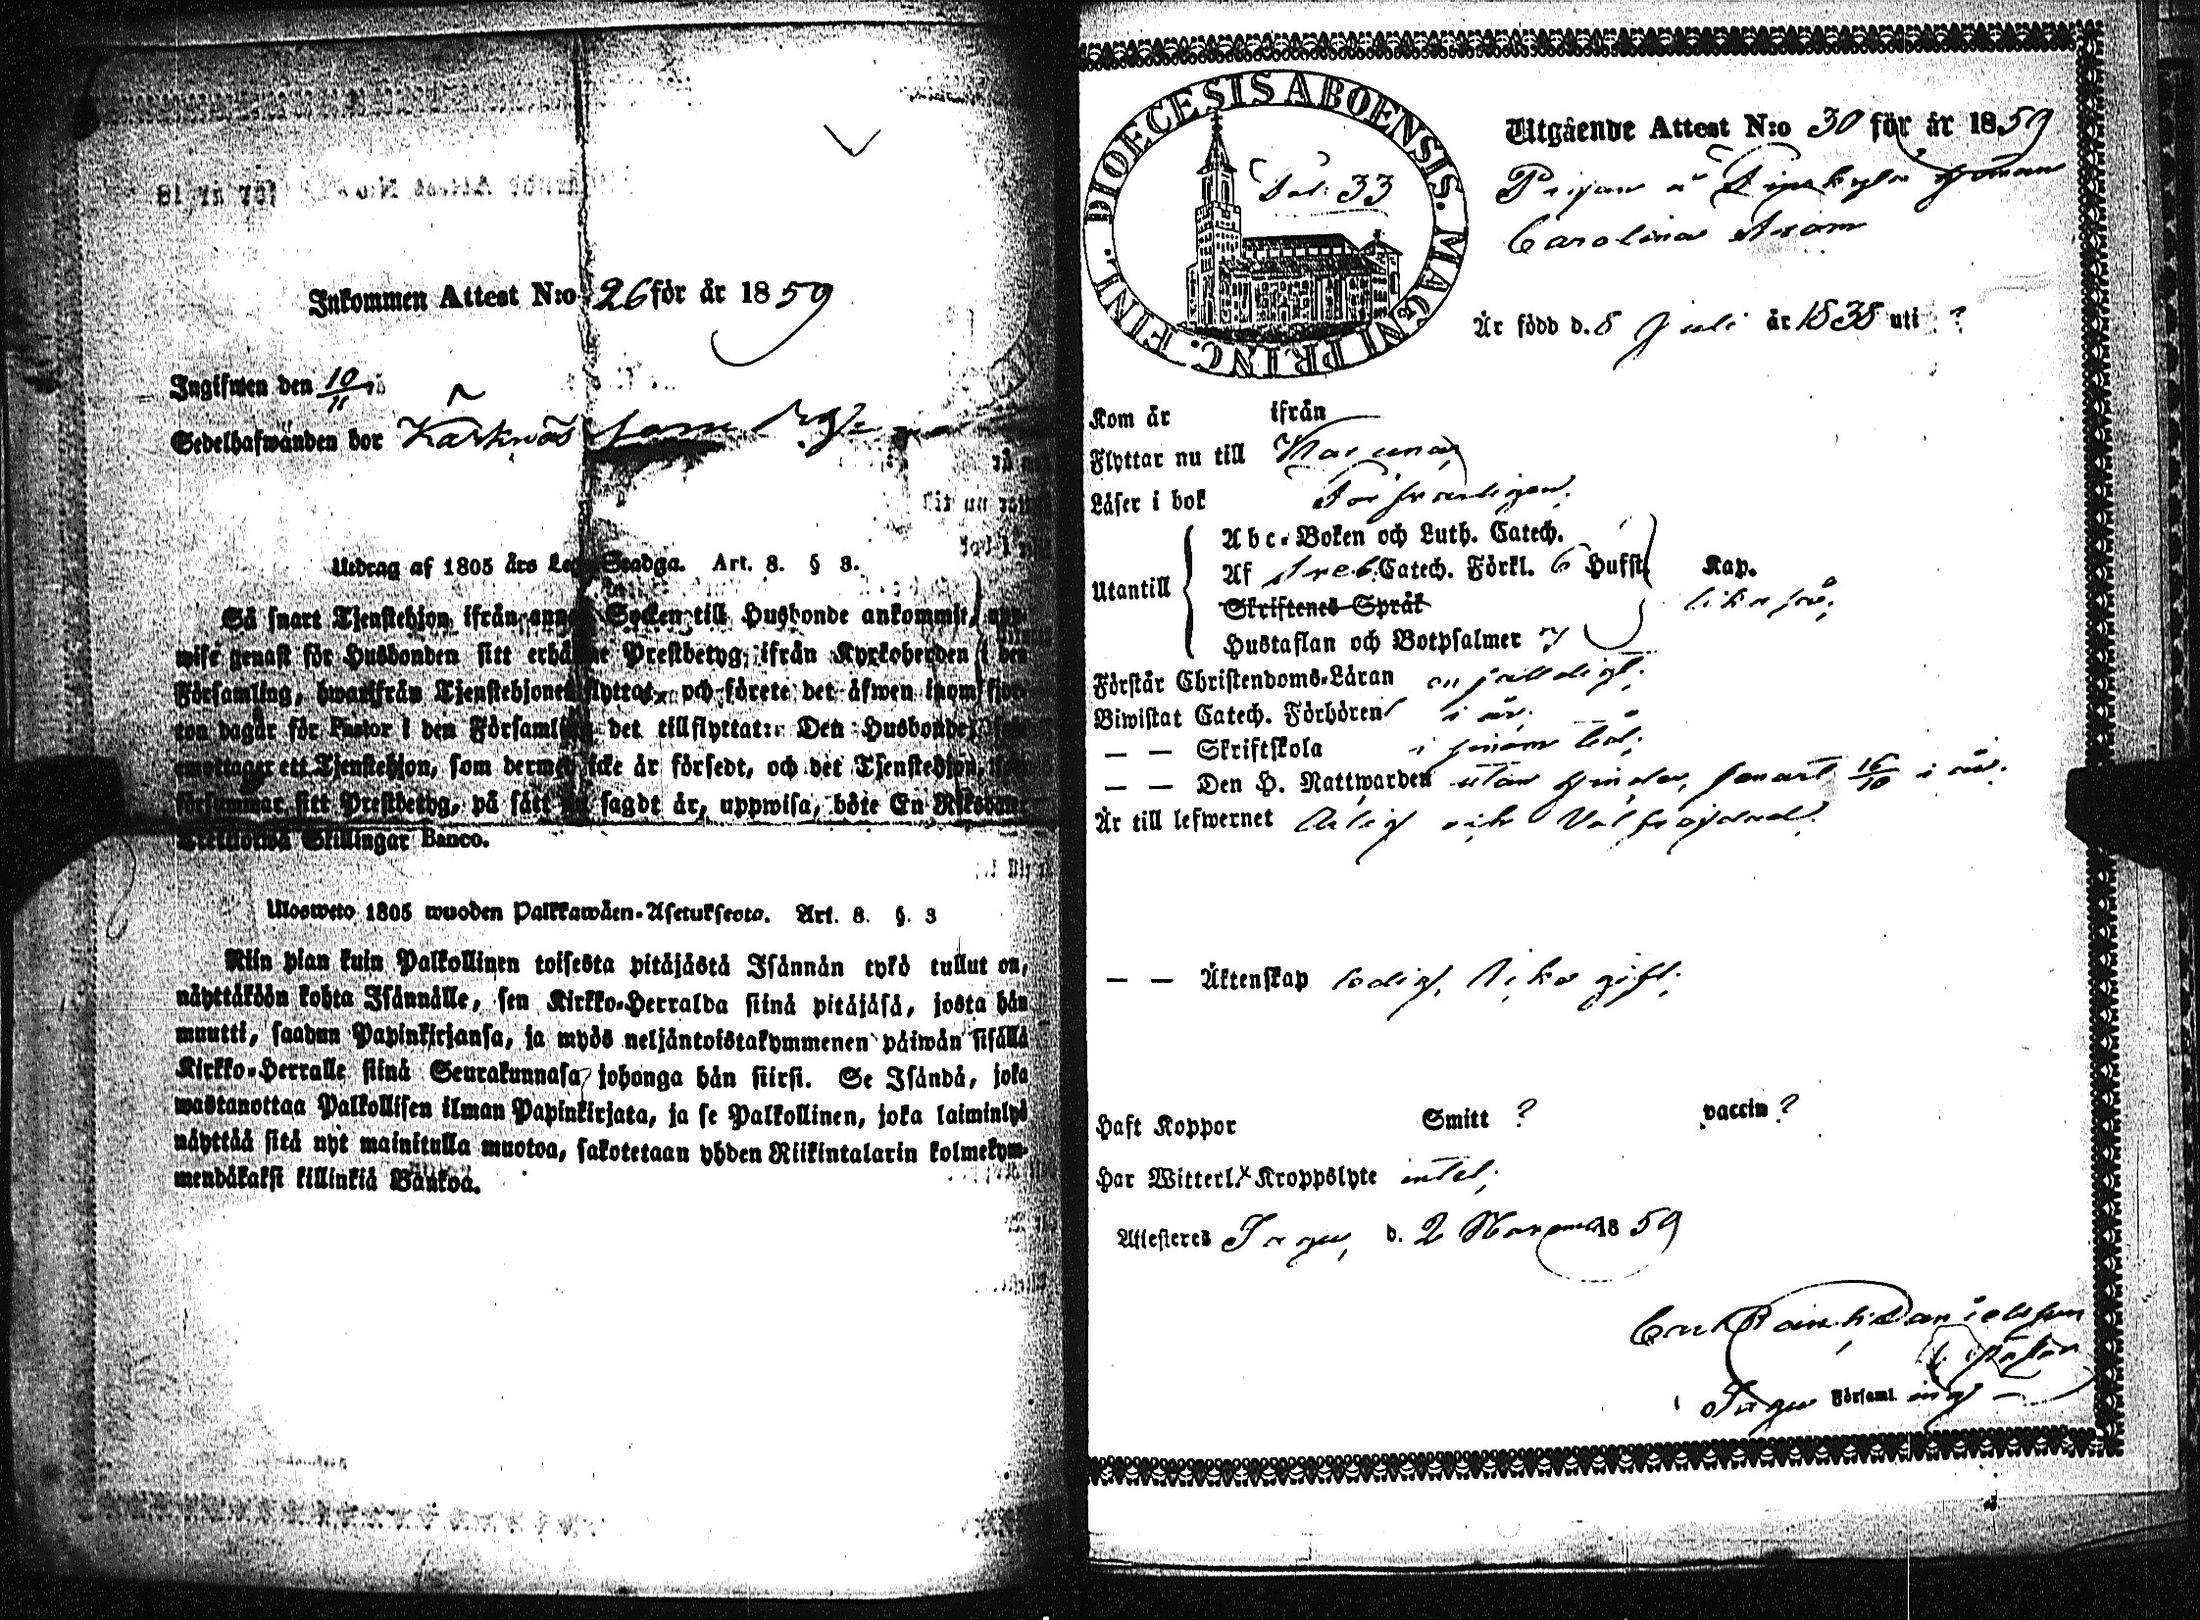 Inkommen Attest N:o 26 för år 1859
Ingifwen den 10/11
Sedelhafwanden bor Karknäs
Utdrag af 1805 års Lego Stadga. Art. 8. § 3.
Så snart Tjenstehjon ifrån annan Socken till Husbonde ankommit, upp-
wise genast för Husbonden sitt erhållne Prestbetyg, ifrån Kyrkoherden i den
Församling, hwarifrån Tjenstehjonet flyttat, och förete det äfwen inom fjor-
ton dagar för Pastor i den Församling det tillflyttat: Den Husbonde, som
emottager ett Tjenstehjon, som dermed icke är försedt, och det Tjenstehjon, som
försummar sitt Prestbetyg, på sätt nu sagdt är, uppwisa, böte En Riksdaler
Trettiotwå Skillingar Banco.
Ulosweto 1805 wuoden Palkkawäen-Asetuksesta. Art. 8. §. 3
Niin pian kuin Palkollinen toisesta pitäjästä Isännän tykö tullut on,
näyttäköön kohta Isännälle, sen Kirkko-Herralda siinä pitäjäsä, josta hän
muutti, saadun Papinkirjansa, ja myös neljäntoistakymmenen päiwän sisällä
Kirkko-Herralle siinä Seurakunnasa johonga hän siirsi. Se Isändä, joka
wastanottaa Palkollisen ilman Papinkirjata, ja se Palkollinen, joka laiminlyö
näyttää sitä nyt mainitulla muotoa, sakotetaan yhden Riikintalarin kolmekym-
mendäkaksi killinkiä Bankoa.
DIOECESIS ABOENSIS. MAGNI PRINC. FINL.
33
Utgående Attest N:o 30 för år 1859
Pigan
Carolina
Är född d. 8 Juli år 1838 uti ?
Kom år ifrån
Flyttar nu till
Läser i bok Försvarligen.
Utantill
Abc-Boken och Luth. Catech.
Af Sveb. Catech. Förkl. 6 Hufst. Kap.
Skriftenes Språk likaså;
Hustaflan och Botpsalmer 7
Förstår Christendoms-Läran enfaldigt;
Biwistat Catech. Förhören i år;
— — Skriftskola i sinom tid;
— — Den H. Nattwarden utan hinder, senast 16/10 i år.
Är till lefwernet Ärlig och Välfrejdad.
— — Äktenskap ledig, till gift;
Haft Koppor Smitt ? vaccin ?
Har Witterl. Kroppslyte intet;
Attesteres Ingo, d. 2 November 1859
Danielsson
Pastor
i Ingo Församling